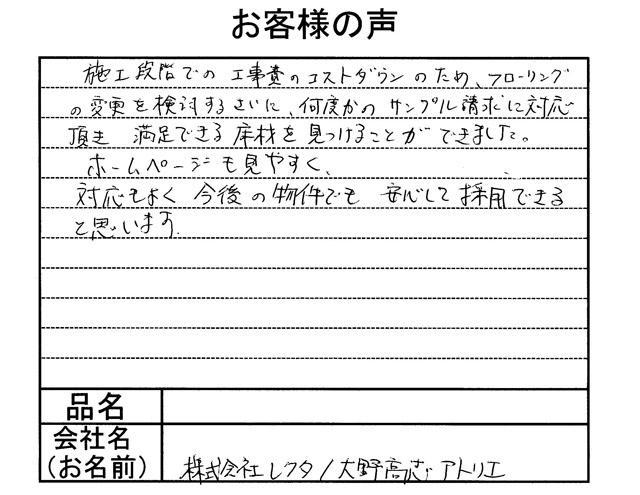 お客様の声
施工段階での工事費のコストダウンのため、フローリング
の変更を検討するさいに、何度かのサンプル請求に対応
頂き 満足できる床材を見つけることができました。
ホームページも見やすく、
対応もよく 今後の物件でも 安心して採用できる
と思います.
品名
会社名
(お名前)
株式会社レクタ/大野高志アトリエ